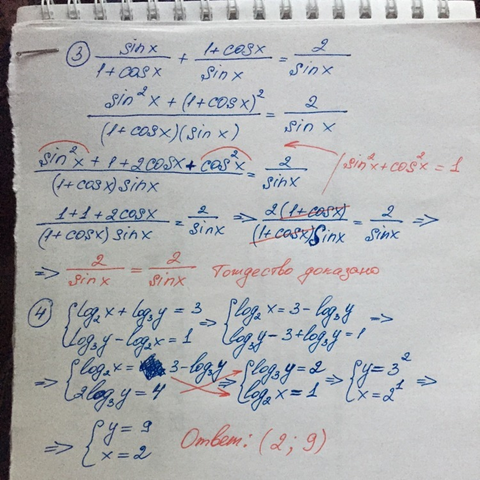 ③ sinx/(1+cosx) + (1+cosx)/sinx = 2/sinx
(sin²x + (1+cosx)²)/((1+cosx)(sinx)) = 2/sinx
(sin²x + 1 + 2cosx + cos²x)/((1+cosx)sinx) = 2/sinx | sin²x + cos²x = 1
(1+1+2cosx)/((1+cosx)sinx) = 2/sinx => 2(1+cosx)/((1+cosx)sinx) = 2/sinx =>
=> 2/sinx = 2/sinx Тождество доказано
④ { log₂x + log₃y = 3 ; log₃y - log₂x = 1 => { log₂x = 3 - log₃y ; log₃y - 3 + log₃y = 1 =>
=> { log₂x = 3 - log₃y ; 2log₃y = 4 => { log₃y = 2 ; log₂x = 1 => { y = 3² ; x = 2¹ =>
=> { y = 9 ; x = 2 Ответ: (2; 9)